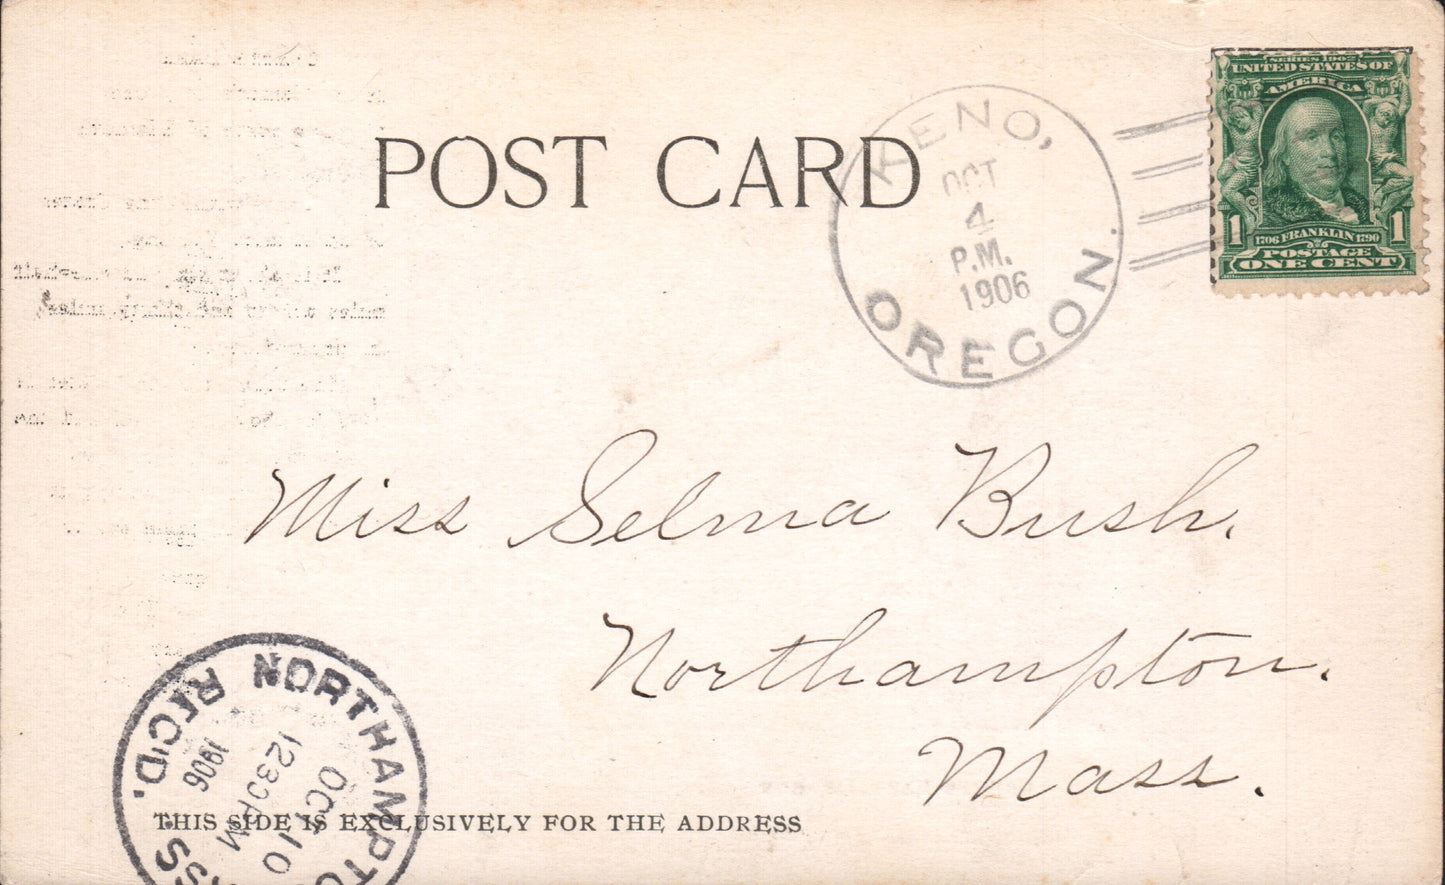 POST CARD
KENO,
OCT
4
P.M.
1906
OREGON.
SERIES 1902
UNITED STATES OF
AMERICA
1 1706 FRANKLIN 1790 1
POSTAGE
ONE CENT
Miss Selma Bush,
Northampton.
Mass.
NORTHAMPTO
SS.
REC'D.
OCT 10
1230 PM
1906
THIS SIDE IS EXCLUSIVELY FOR THE ADDRESS